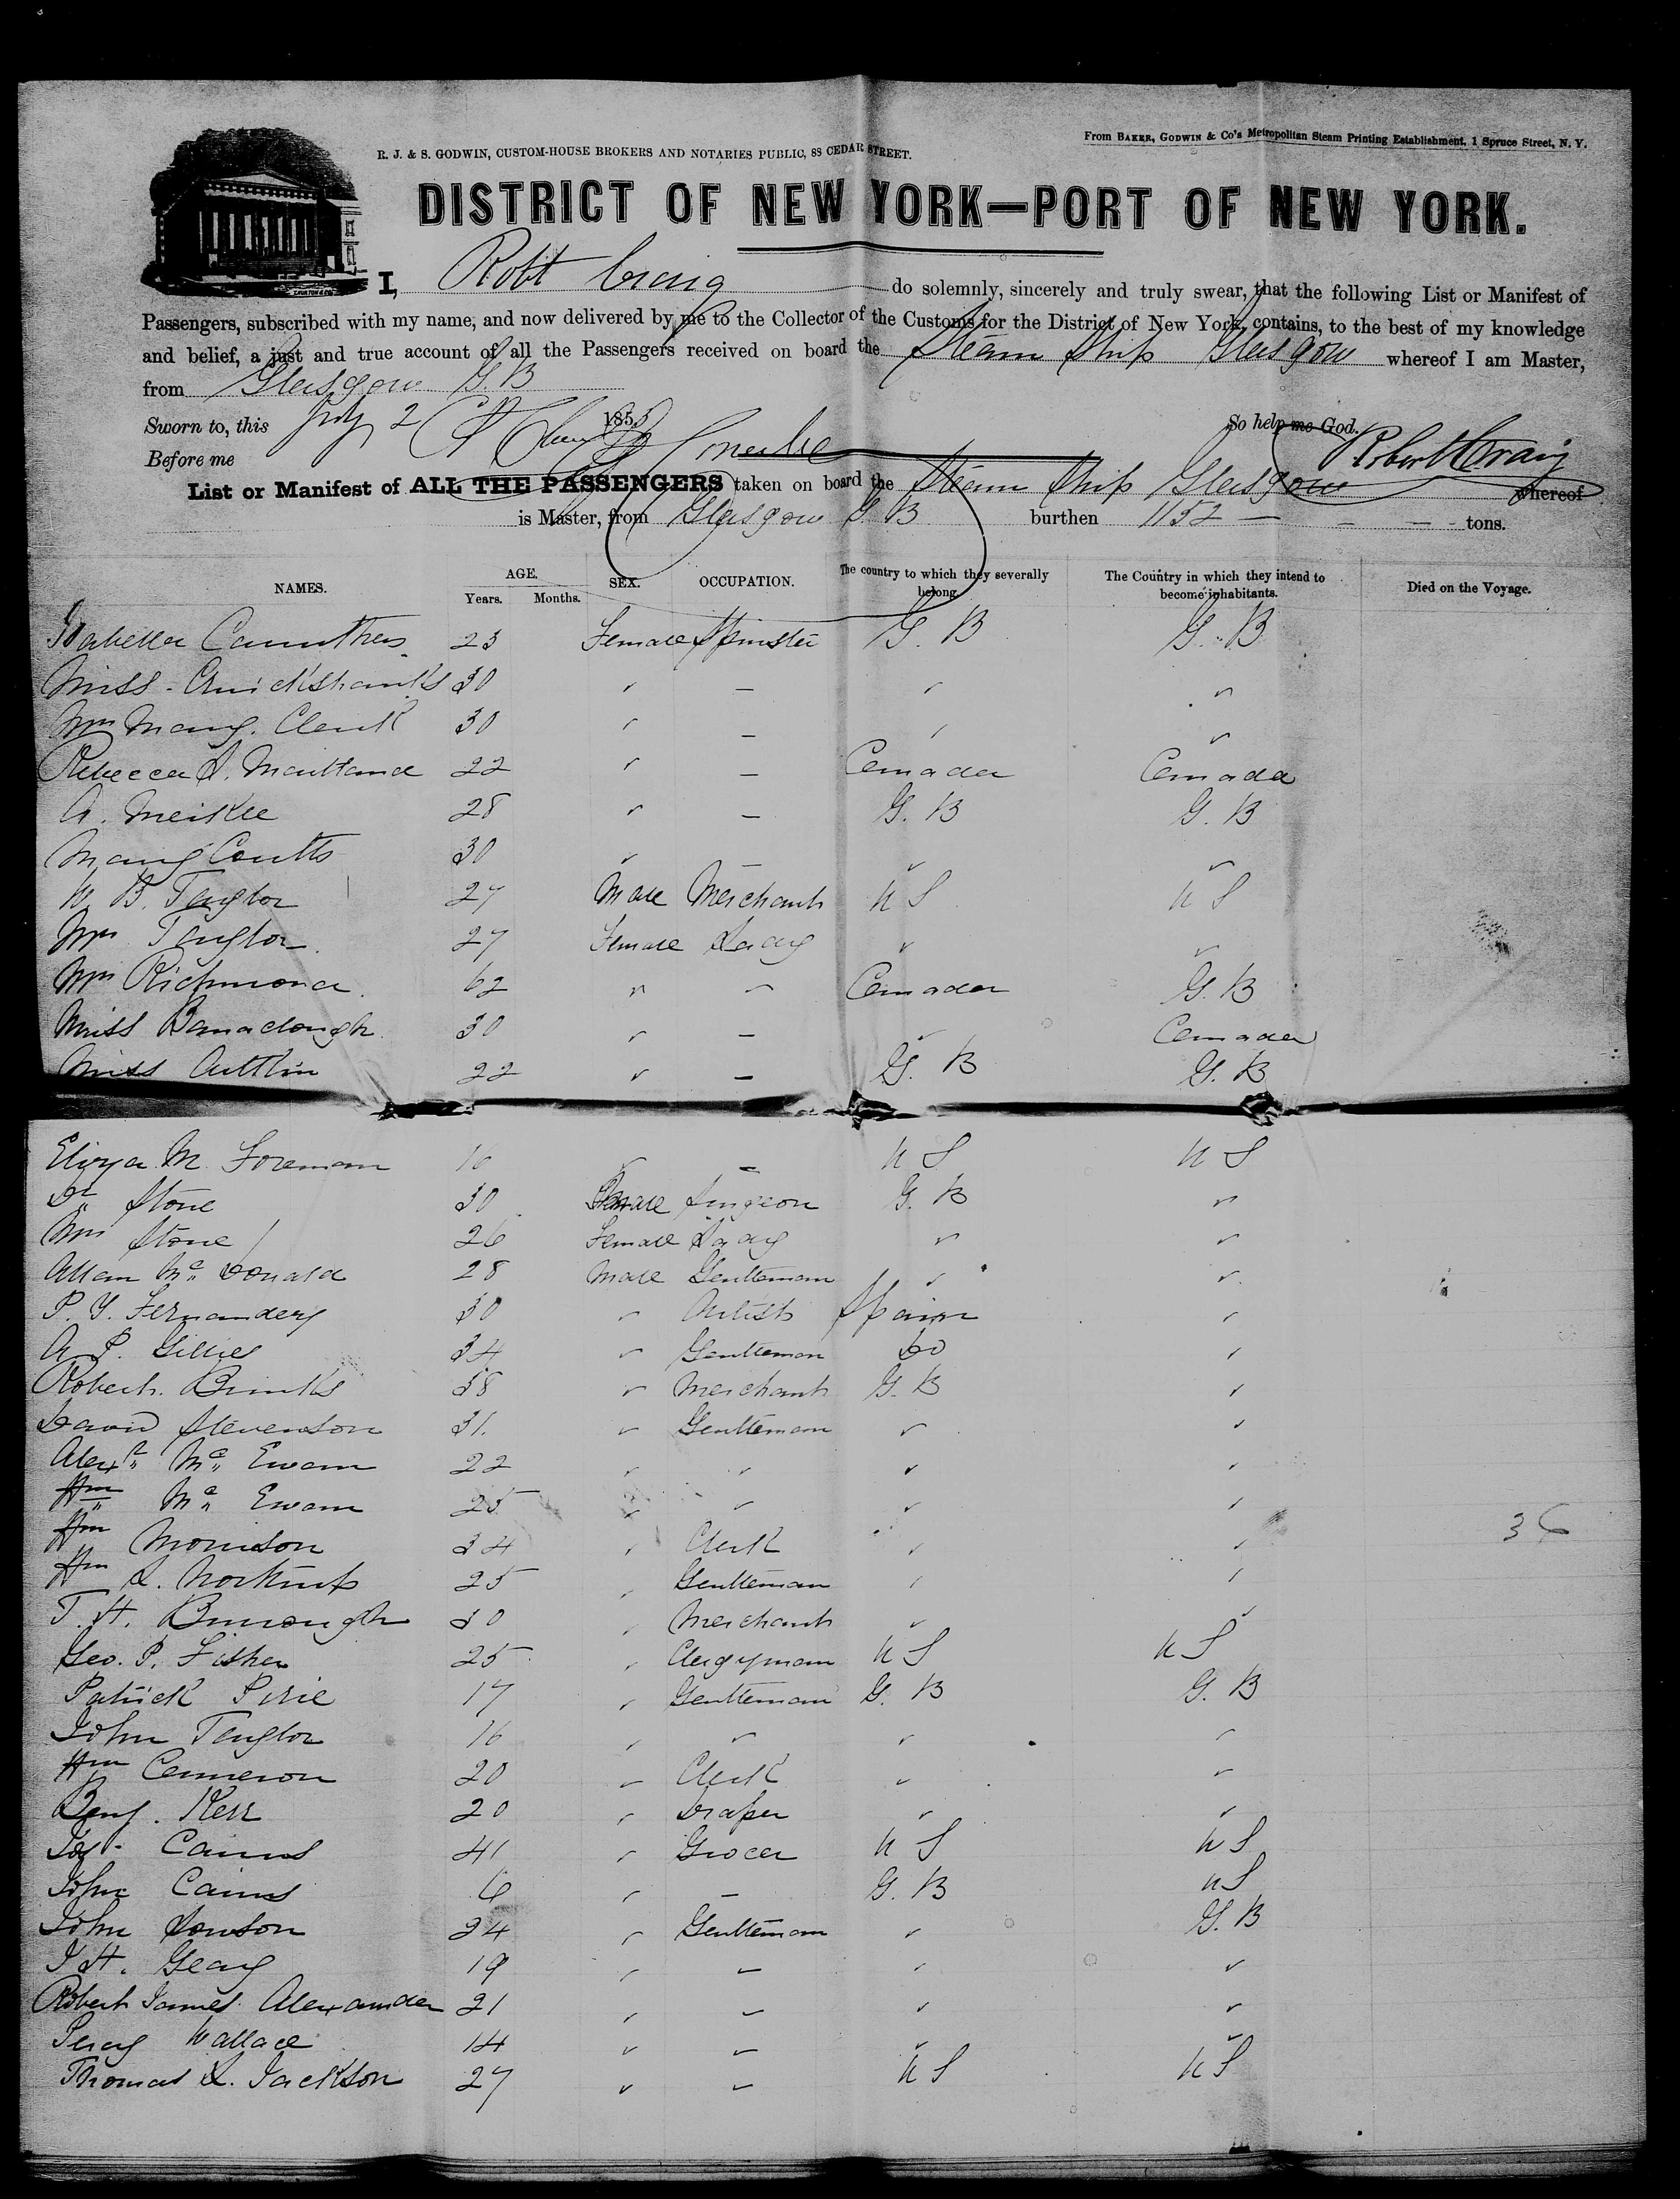 R. J. & S. GODWIN, CUSTOM-HOUSE BROKERS AND NOTARIES PUBLIC, 88 CEDAR STREET.
From BAKER, GODWIN & Co's Metropolitan Steam Printing Establishment, 1 Spruce Street, N. Y.
DISTRICT OF NEW YORK—PORT OF NEW YORK.
I, Robt Craig do solemnly, sincerely and truly swear, that the following List or Manifest of
Passengers, subscribed with my name, and now delivered by me to the Collector of the Customs for the District of New York, contains, to the best of my knowledge
and belief, a just and true account of all the Passengers received on board the Steam Ship Glasgow whereof I am Master,
from Glasgow G. B
Sworn to, this July 2 1855 So help me God.
Before me Robert Craig
List or Manifest of ALL THE PASSENGERS taken on board the Steam Ship Glasgow whereof
is Master, from Glasgow G. B burthen 1152 — — — tons.
NAMES. AGE. Years. Months. SEX. OCCUPATION. The country to which they severally belong. The Country in which they intend to become inhabitants. Died on the Voyage.
Isabella Carruthers 23 Female Spinster G. B G. B
Miss Cruickshanks 30 " — " "
Mrs Mary Clerk 30 " — " "
Rebecca S. Maitland 22 " — Canada Canada
A. Meikle 28 " — G. B G. B
Mary Coutts 30 " — " "
W. B. Taylor 27 Male Merchant U S U S
Mrs Taylor 27 Female Lady " "
Mrs Richmond 62 " " Canada G. B
Miss Barraclough 30 " — " Canada
Miss 22 " — G. B G. B
Eliza M. Foreman 16 " — U S U S
Dr Stone 30 Male Surgeon G. B "
Mrs Stone 26 Female Lady " "
Allan Mc Donald 28 Male Gentleman " "
P. Y. Fernandez 30 " Artist Spain "
A. P. Gillies 34 " Gentleman Do "
Robert Binks 38 " Merchant G. B "
David Stevenson 31 " Gentleman " "
Alexr Mc Ewan 22 " " " "
Wm Mc Ewan 25 " " " "
Wm Morrison 34 " Clerk " " 36
Wm L. Northrup 25 " Gentleman " "
T. H. Burrough 30 " Merchant " "
Geo. P. Fisher 25 " Clergyman U S U S
Patrick Pirie 17 " Gentleman G. B G. B
John Taylor 16 " " " "
Wm Cameron 20 " Clerk " "
Benj. Kerr 20 " Draper " "
Jas. Cairns 41 " Grocer U S U S
John Cairns 6 " — G. B U S
John Dowson 24 " Gentleman " G. B
J. H. Geary 19 " — " "
Robert James Alexander 21 " " " "
Percy Wallace 14 " " " "
Thomas L. Jackson 27 " " U S U S